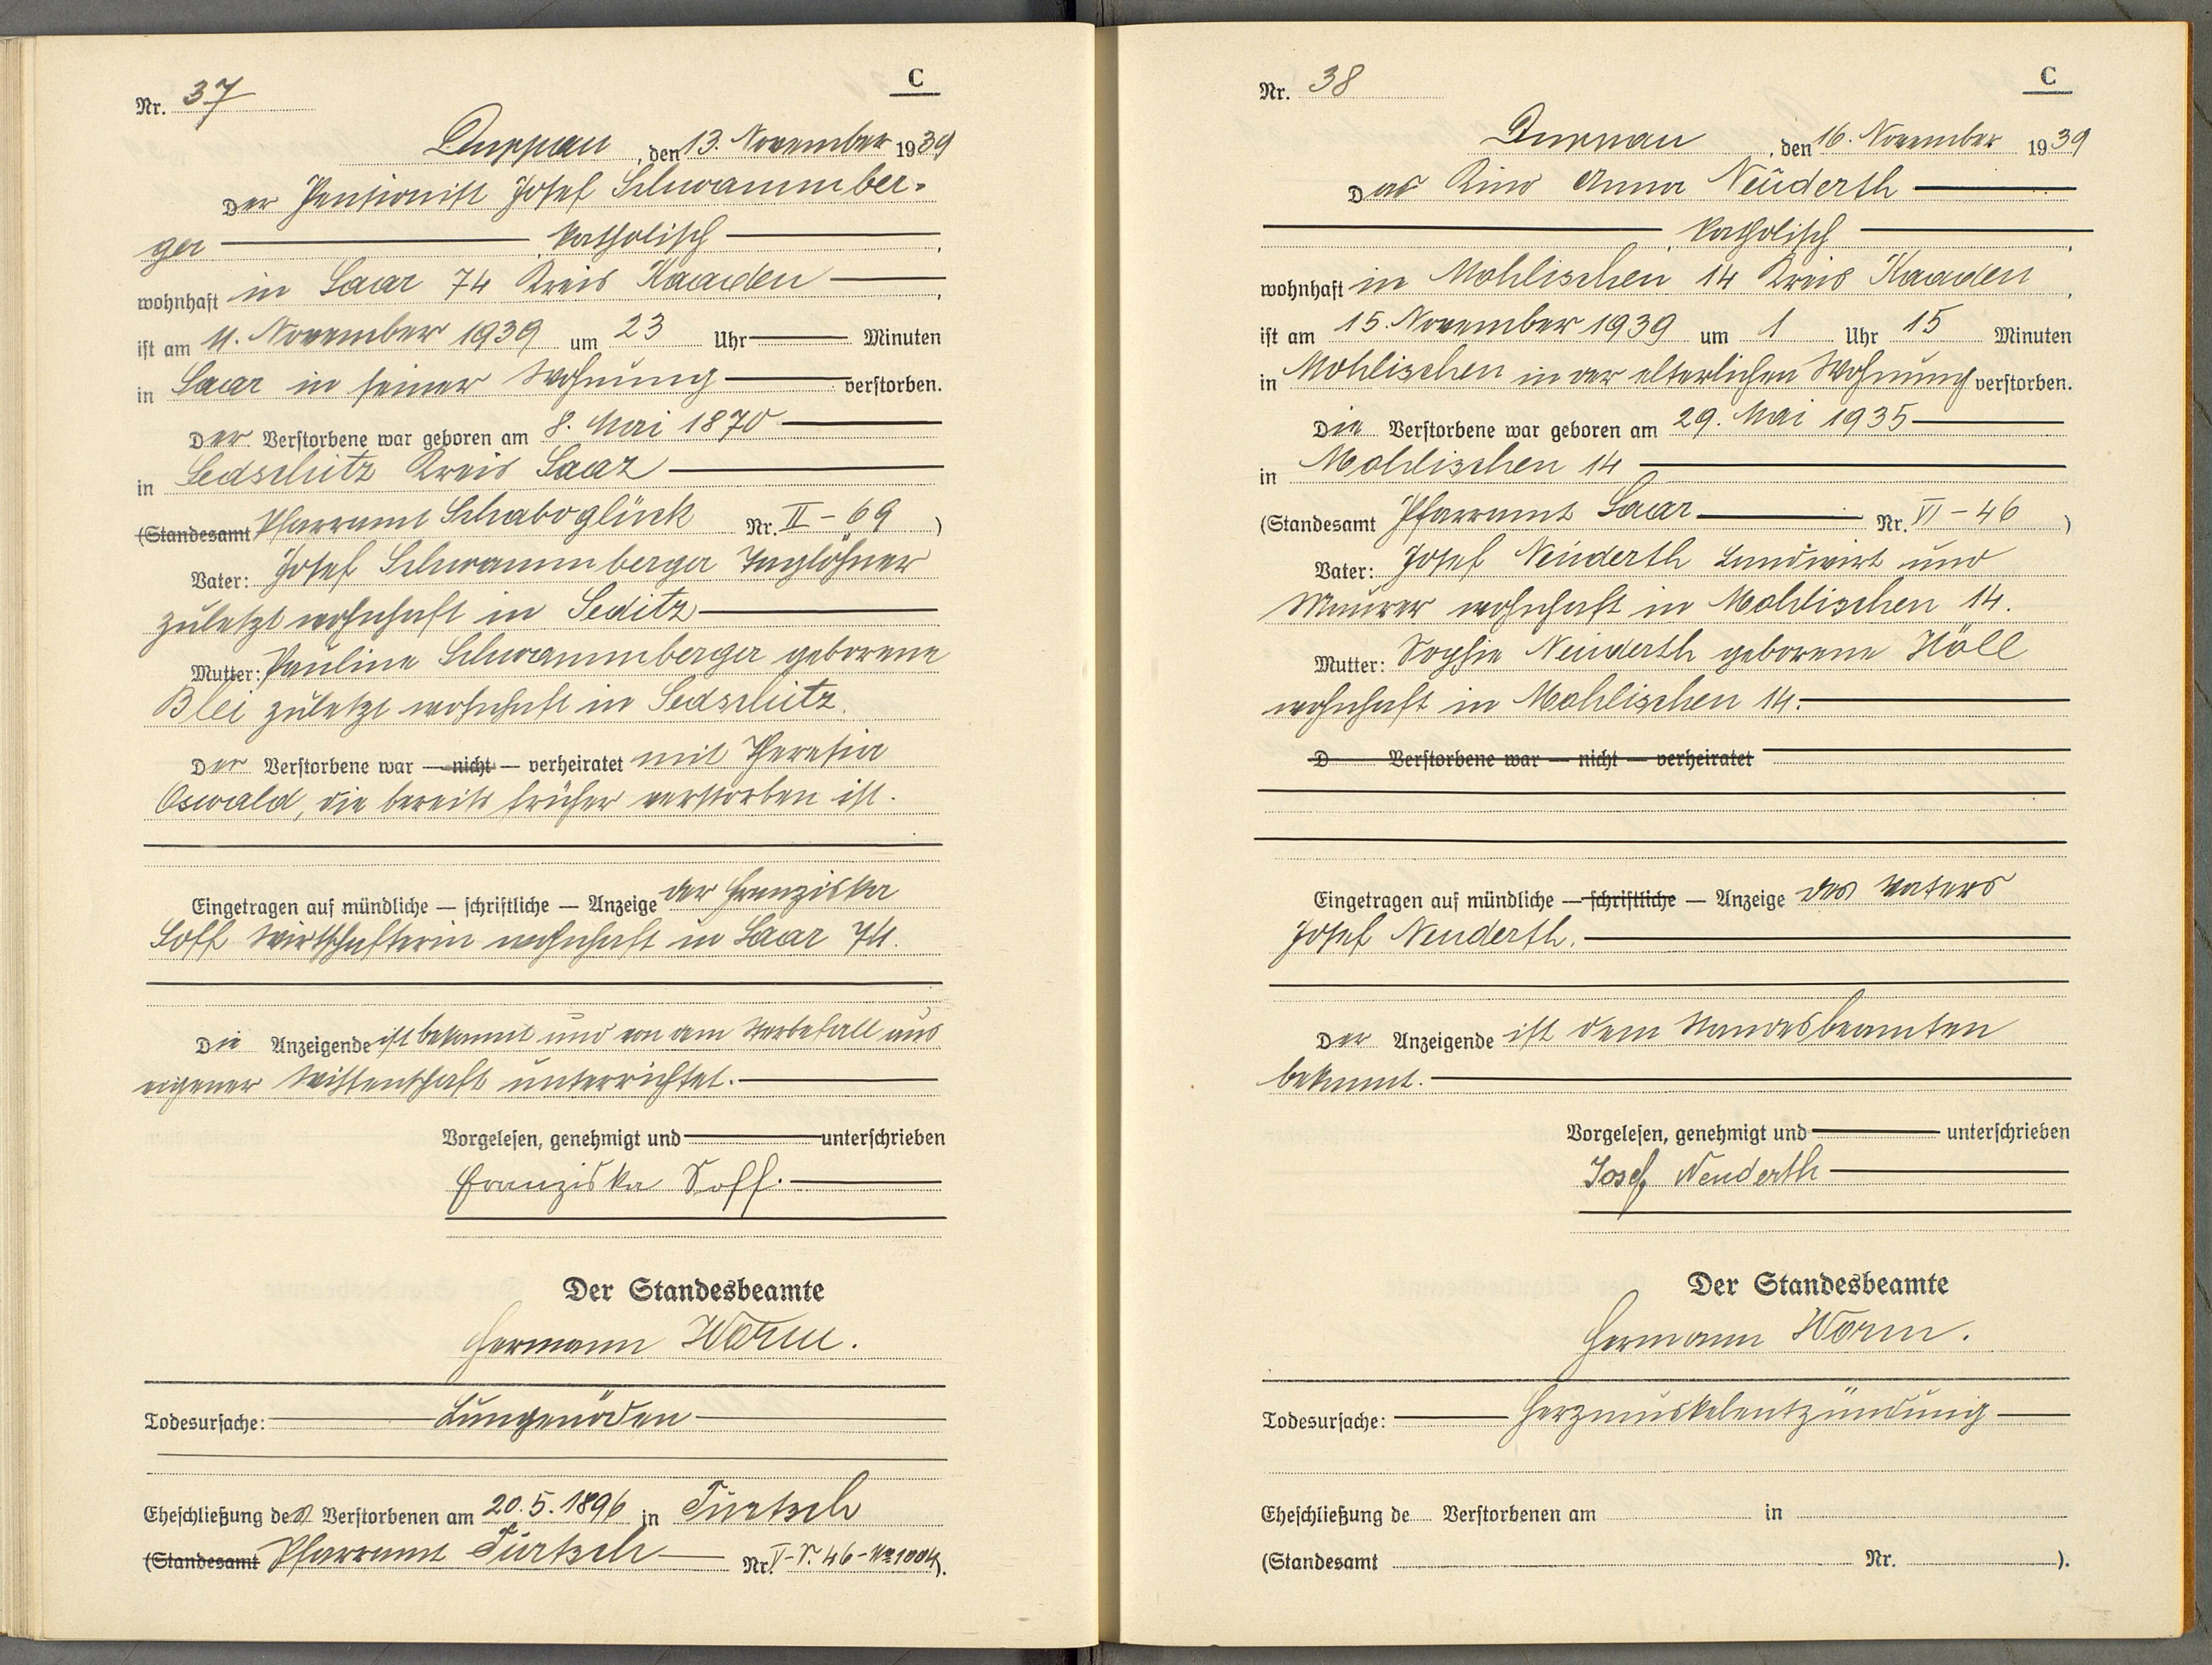 Nr. 37
C
Duppau, den 13. November 1939
Der Pensionist Josef Schwammber-
ger katholisch,
wohnhaft in Saar 74 Kreis Kaaden,
ist am 11. November 1939 um 23 Uhr Minuten
in Saar in seiner Wohnung verstorben.
Der Verstorbene war geboren am 8. Mai 1870
in Sedschitz Kreis Saaz
(Standesamt Pfarramt Schaboglück Nr. II - 69)
Vater: Josef Schwammberger Taglöhner
zuletzt wohnhaft in Seditz
Mutter: Pauline Schwammberger geborene
Blei zuletzt wohnhaft in Sedschitz.
Der Verstorbene war — nicht — verheiratet mit Theresia
Oswald, die bereits früher verstorben ist.
Eingetragen auf mündliche — schriftliche — Anzeige der Franziska
Soff Wirtschafterin wohnhaft in Saar 74.
Die Anzeigende ist bekannt und von dem Sterbefall aus
eigener Wissenschaft unterrichtet.
Vorgelesen, genehmigt und unterschrieben
Franziska Soff.
Der Standesbeamte
Hermann Worm.
Todesursache: Lungenödem
Eheschließung des Verstorbenen am 20.5.1896 in Türtsch
(Standesamt Pfarramt Türtsch Nr. V-S. 46-No 1004).
Nr. 38
C
Duppau, den 16. November 1939
Das Kind Anna Neuderth
katholisch,
wohnhaft in Mohlischen 14 Kreis Kaaden,
ist am 15. November 1939 um 1 Uhr 15 Minuten
in Mohlischen in der elterlichen Wohnung verstorben.
Die Verstorbene war geboren am 29. Mai 1935
in Mohlischen 14
(Standesamt Pfarramt Saar Nr. VI - 46)
Vater: Josef Neuderth Landwirt und
Maurer wohnhaft in Mohlischen 14.
Mutter: Sophie Neuderth geborene Höll
wohnhaft in Mohlischen 14.
D Verstorbene war — nicht — verheiratet
Eingetragen auf mündliche — schriftliche — Anzeige des Vaters
Josef Neuderth.
Der Anzeigende ist dem Standesbeamten
bekannt.
Vorgelesen, genehmigt und unterschrieben
Josef Neuderth
Der Standesbeamte
Hermann Worm.
Todesursache: Herzmuskelentzündung
Eheschließung de Verstorbenen am in
(Standesamt Nr. ).